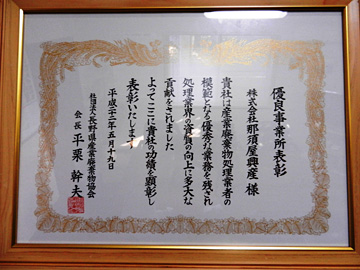 優良事業所表彰
株式会社那須屋興産 様
貴社は産業廃棄物処理業者の
模範となる優秀な業務を残され
処理業界の資質の向上に多大な
貢献をされました
よってここに貴社の功績を顕彰し
表彰いたします
平成二十二年五月十九日
社団法人長野県産業廃棄物協会
会長 平栗 幹夫